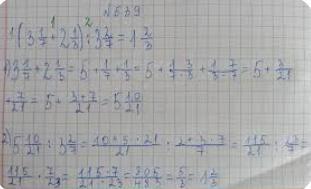 №639
1 2
1) (3 1/7 + 2 1/3) : 3 2/7 = 1 2/3
1) 3 1/7 + 2 1/3 = 5 + 1/7 + 1/3 = 5 + 1·3/7·3 + 1·7/3·7 = 5 + 3/21
+ 7/21 = 5 + 3+7/21 = 5 10/21
2) 5 10/21 : 3 2/7 = 10+5·21/21 : 2+3·7/7 = 115/21 : 23/7 =
115/21 · 7/23 = 115·7/21·23 = 805/483 = 5/3 = 1 2/3